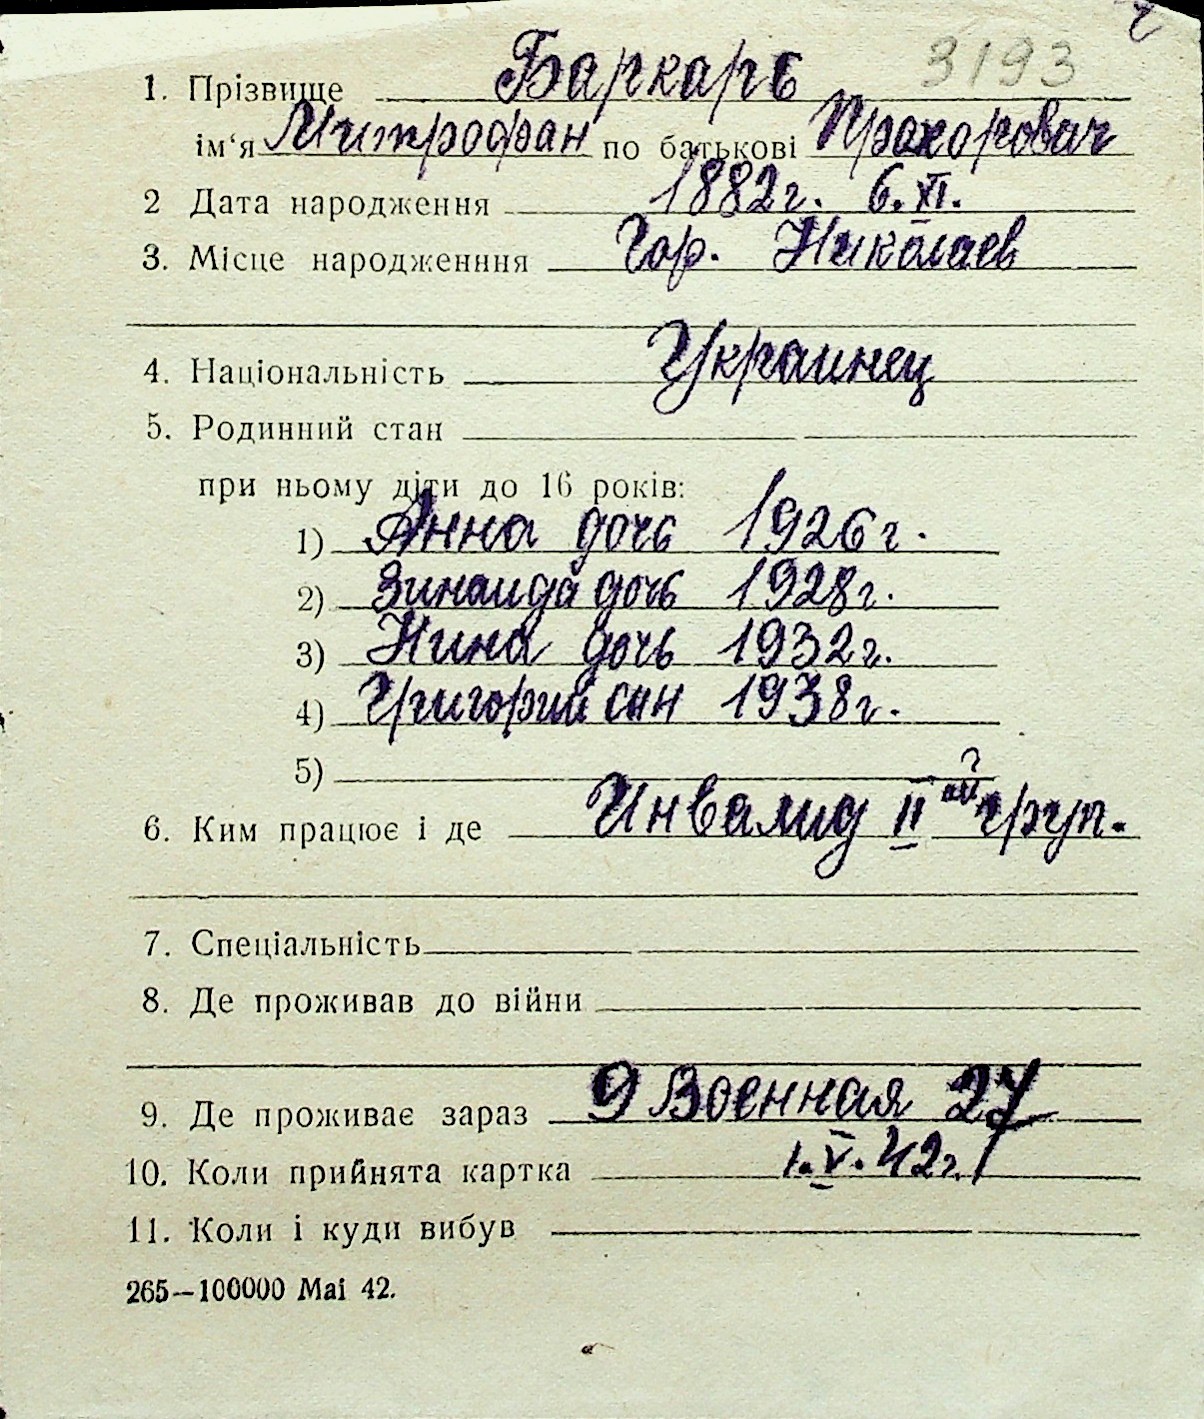 3193
1. Прізвище Баркарь
ім‘я Митрофан по батькові Прохорович
2 Дата народження 1882г. 6.XI.
3. Місце народженння Гор. Николаев
4. Національність Украинец
5. Родинний стан
при ньому діти до 16 років:
1) Анна дочь 1926г.
2) Зинаида дочь 1928г.
3) Нина дочь 1932г.
4) Григорий сын 1938г.
5)
6. Ким працює і де Инвалид II ой груп.
7. Спеціальність
8. Де проживав до війни
9. Де проживає зараз 9 Военная 27
10. Коли прийнята картка 1.V.42г.
11. Коли і куди вибув
265—100000 Mai 42.